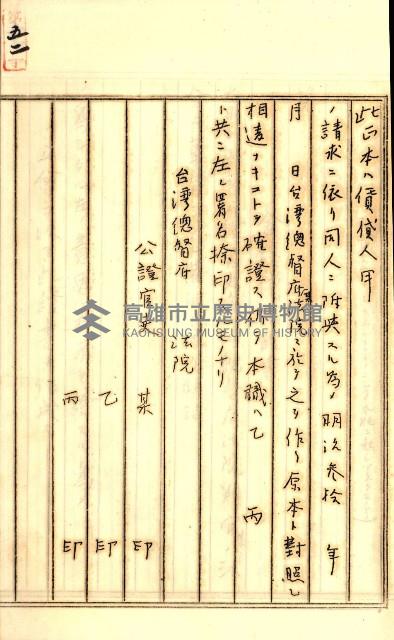 五二
此正本ハ債貸人甲
ノ請求ニ依リ同人ニ附與スル為ノ明治参拾 年
月 日台湾總督府 ニ於テ之ヲ作リ原本ト對照シ
相違ナキコトヲ確證ス 本職ハ乙 丙
ト共ニ左ニ署名捺印スルモノナリ
台湾總督府 法院
公證官某 某 印
乙 印
丙 印
高雄市立歷史博物館
KAOHSIUNG MUSEUM OF HISTORY